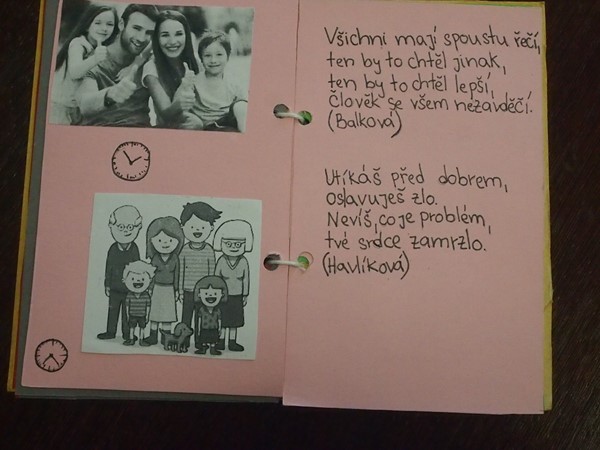 Všichni mají spoustu řečí,
ten by to chtěl jinak,
ten by to chtěl lepší,
Člověk se všem nezavděčí.
(Balková)
Utíkáš před dobrem,
oslavuješ zlo.
Nevíš, co je problém,
tvé srdce zamrzlo.
(Havlíková)